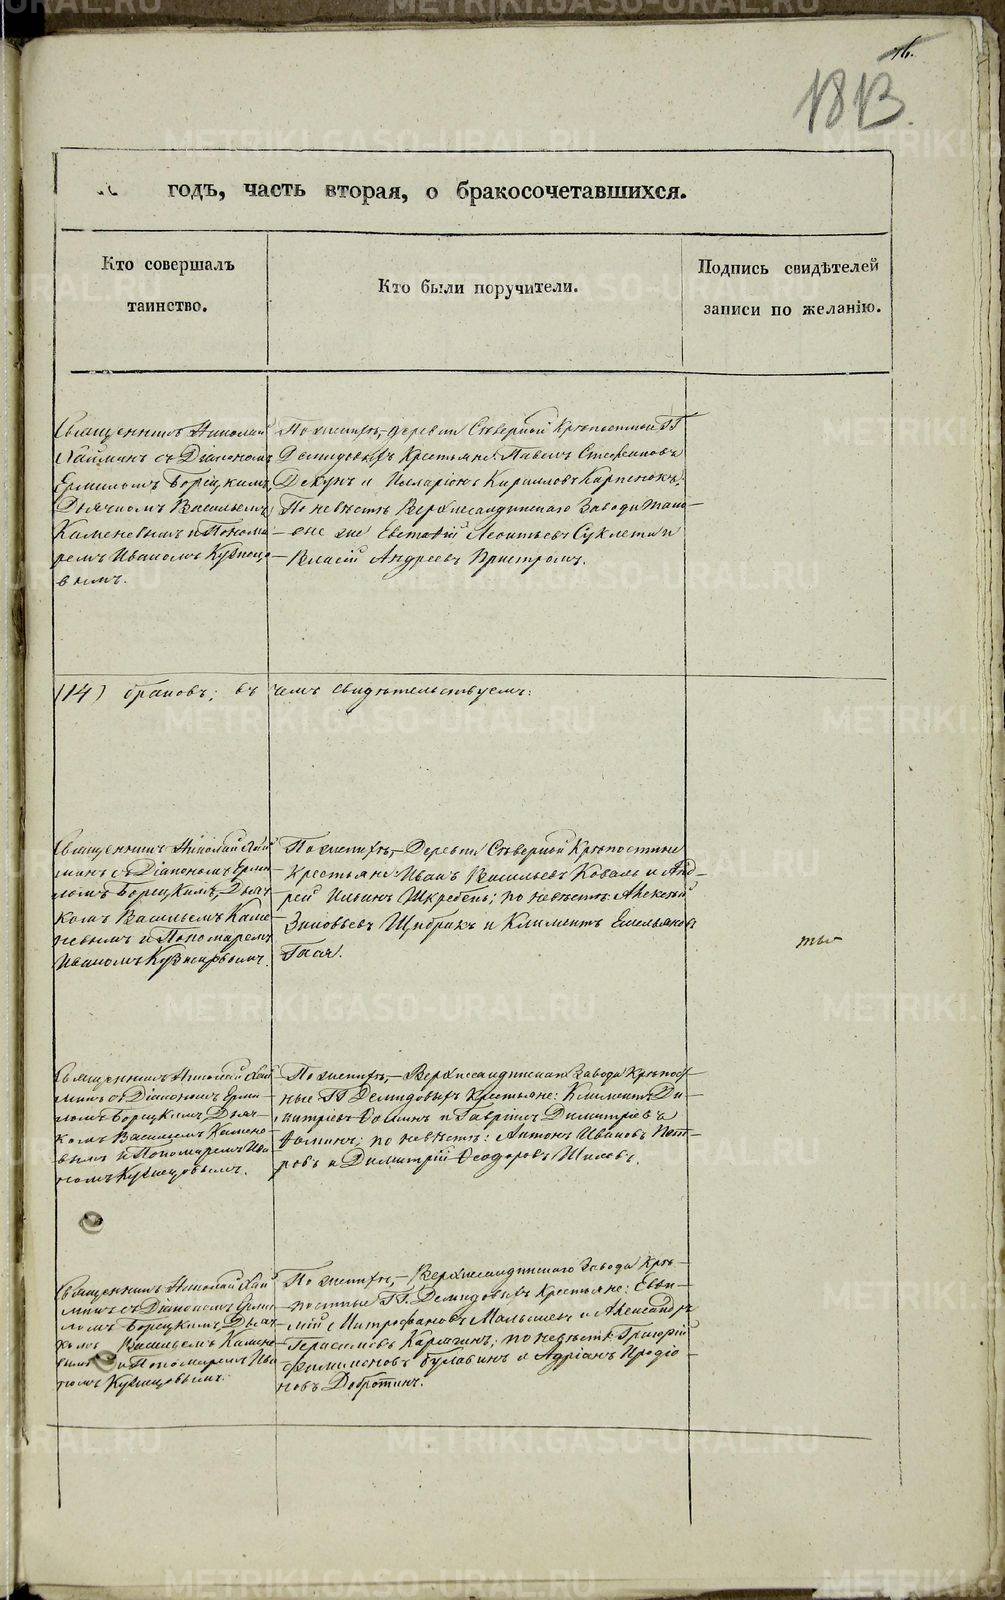 1813.
годъ, часть вторая, о бракосочетавшихся.
Кто совершалъ
таинство.
Кто были поручители.
Подпись свидѣтелей
записи по желанію.
Священникъ Николай
съ Діакономъ
Ермиломъ Борецкимъ,
Дьячкомъ Васильемъ
Каменевымъ и Понома-
ремъ Иваномъ Кузнецо-
вымъ.
По женихѣ, деревни Сѣверной Крѣпостные ГГ
Демидовыхъ Крестьяне: Павелъ Стефановъ
и Илларіонъ Кирилловъ Карпенокъ;
По невѣстѣ Верхнесалдинскаго Завода та-
Евстафій Леонтьевъ и
Власій Андреевъ
(14) браковъ; въ чемъ свидѣтельствуемъ:
Священникъ Николай
съ Діакономъ Ерми-
ломъ Борецкимъ, Дьяч-
комъ Васильемъ Каме-
невымъ и Пономаремъ
Иваномъ Кузнецовымъ.
По женихѣ, Деревни Сѣверной Крѣпостные
Крестьяне: Иванъ Васильевъ Коваль и Анд-
рей Ильинъ Шкребень; по невѣстѣ: Алексѣй
Зиновьевъ и Климентъ Емельяновъ
Священникъ Николай
съ Діакономъ Ерми-
ломъ Борецкимъ, Дьяч-
комъ Васильемъ Камене-
вымъ и Пономаремъ Ива-
номъ Кузнецовымъ.
По женихѣ, Верхнесалдинскаго Завода Крѣпост-
ные ГГ Демидовыхъ Крестьяне: Климентъ Ди-
митріевъ Ѳоминъ и Гавріилъ Димитріевъ
Ѳоминъ; по невѣстѣ: Антонъ Ивановъ Пет-
ровъ и Димитрій Ѳеодоровъ Шиловъ.
Священникъ Николай
съ Діакономъ Ерми-
ломъ Борецкимъ, Дьяч-
комъ Васильемъ Камене-
вымъ и Пономаремъ Ива-
номъ Кузнецовымъ.
По женихѣ, Верхнесалдинскаго Завода Крѣ-
постные ГГ. Демидовыхъ Крестьяне: Евѳи-
мій Митрофановъ Малышевъ и Александръ
Герасимовъ Карягинъ; по невѣстѣ: Григорій
Филимоновъ Булавинъ и Адріанъ Иродіо-
новъ Добротинъ.
METRIKI.GASO-URAL.RU